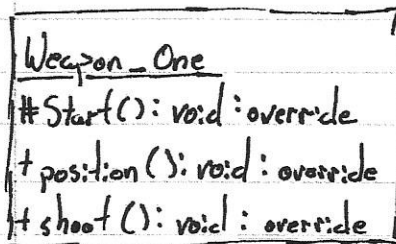 Weapon_One
#Start(): void : override
+ position(): void : override
+ shoot(): void : override